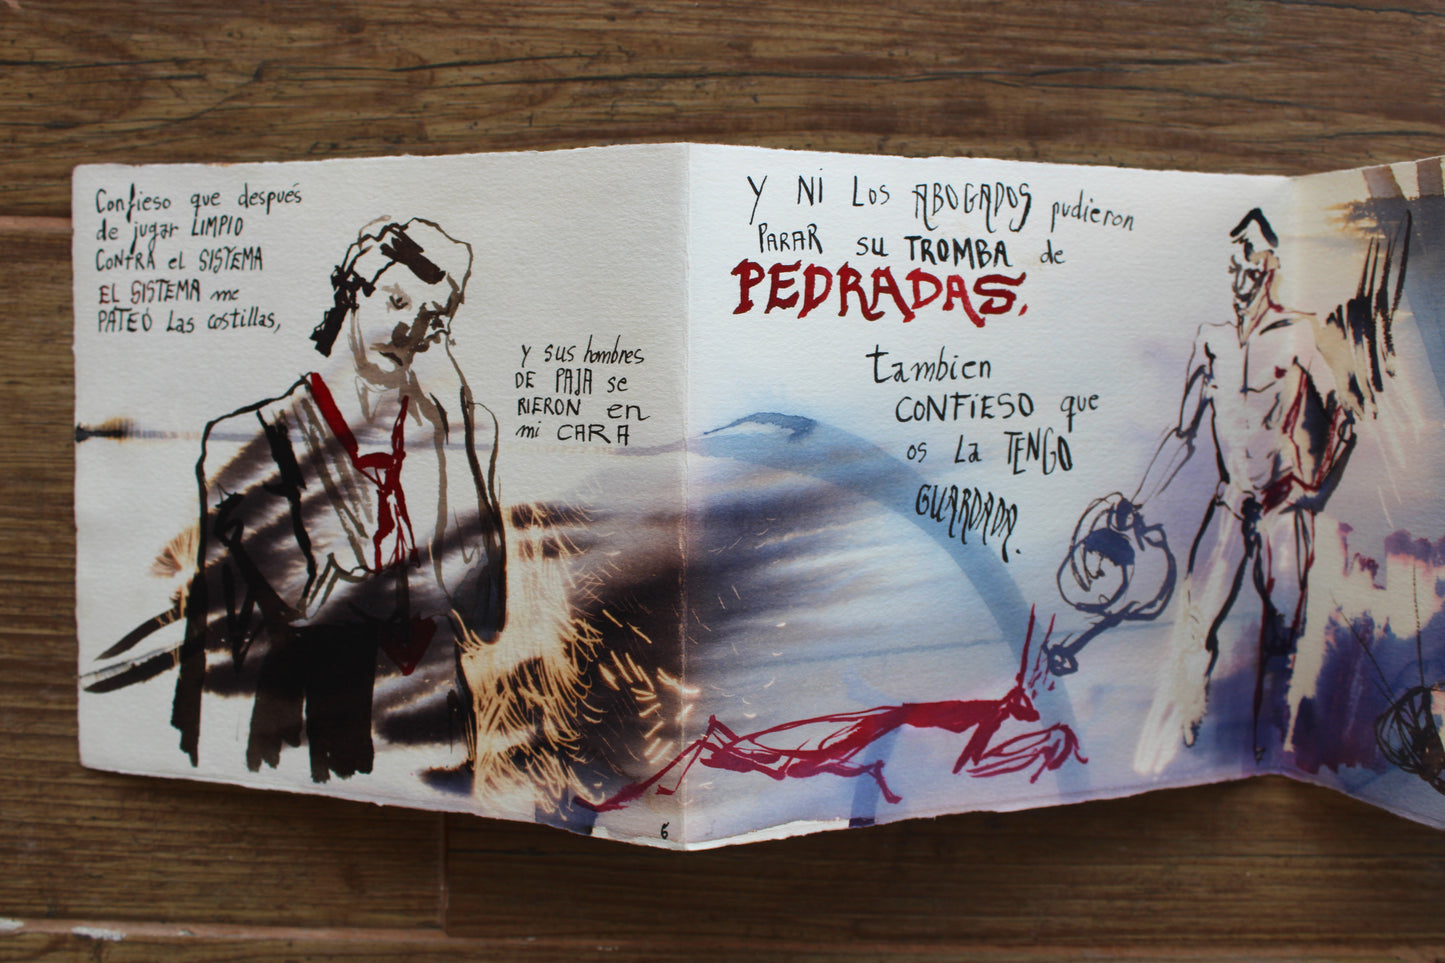 Confieso que después
de jugar LIMPIO
CONTRA el SISTEMA
EL SISTEMA me
PATEÓ Las costillas,
Y sus hombres
DE PAJA se
RIERON en
mi CARA
6
Y Ni Los ABOGADOS pudieron
PARAR su TROMBA de
PEDRADAS,
tambien
CONFIESO que
os La TENGO
GUARDADA.